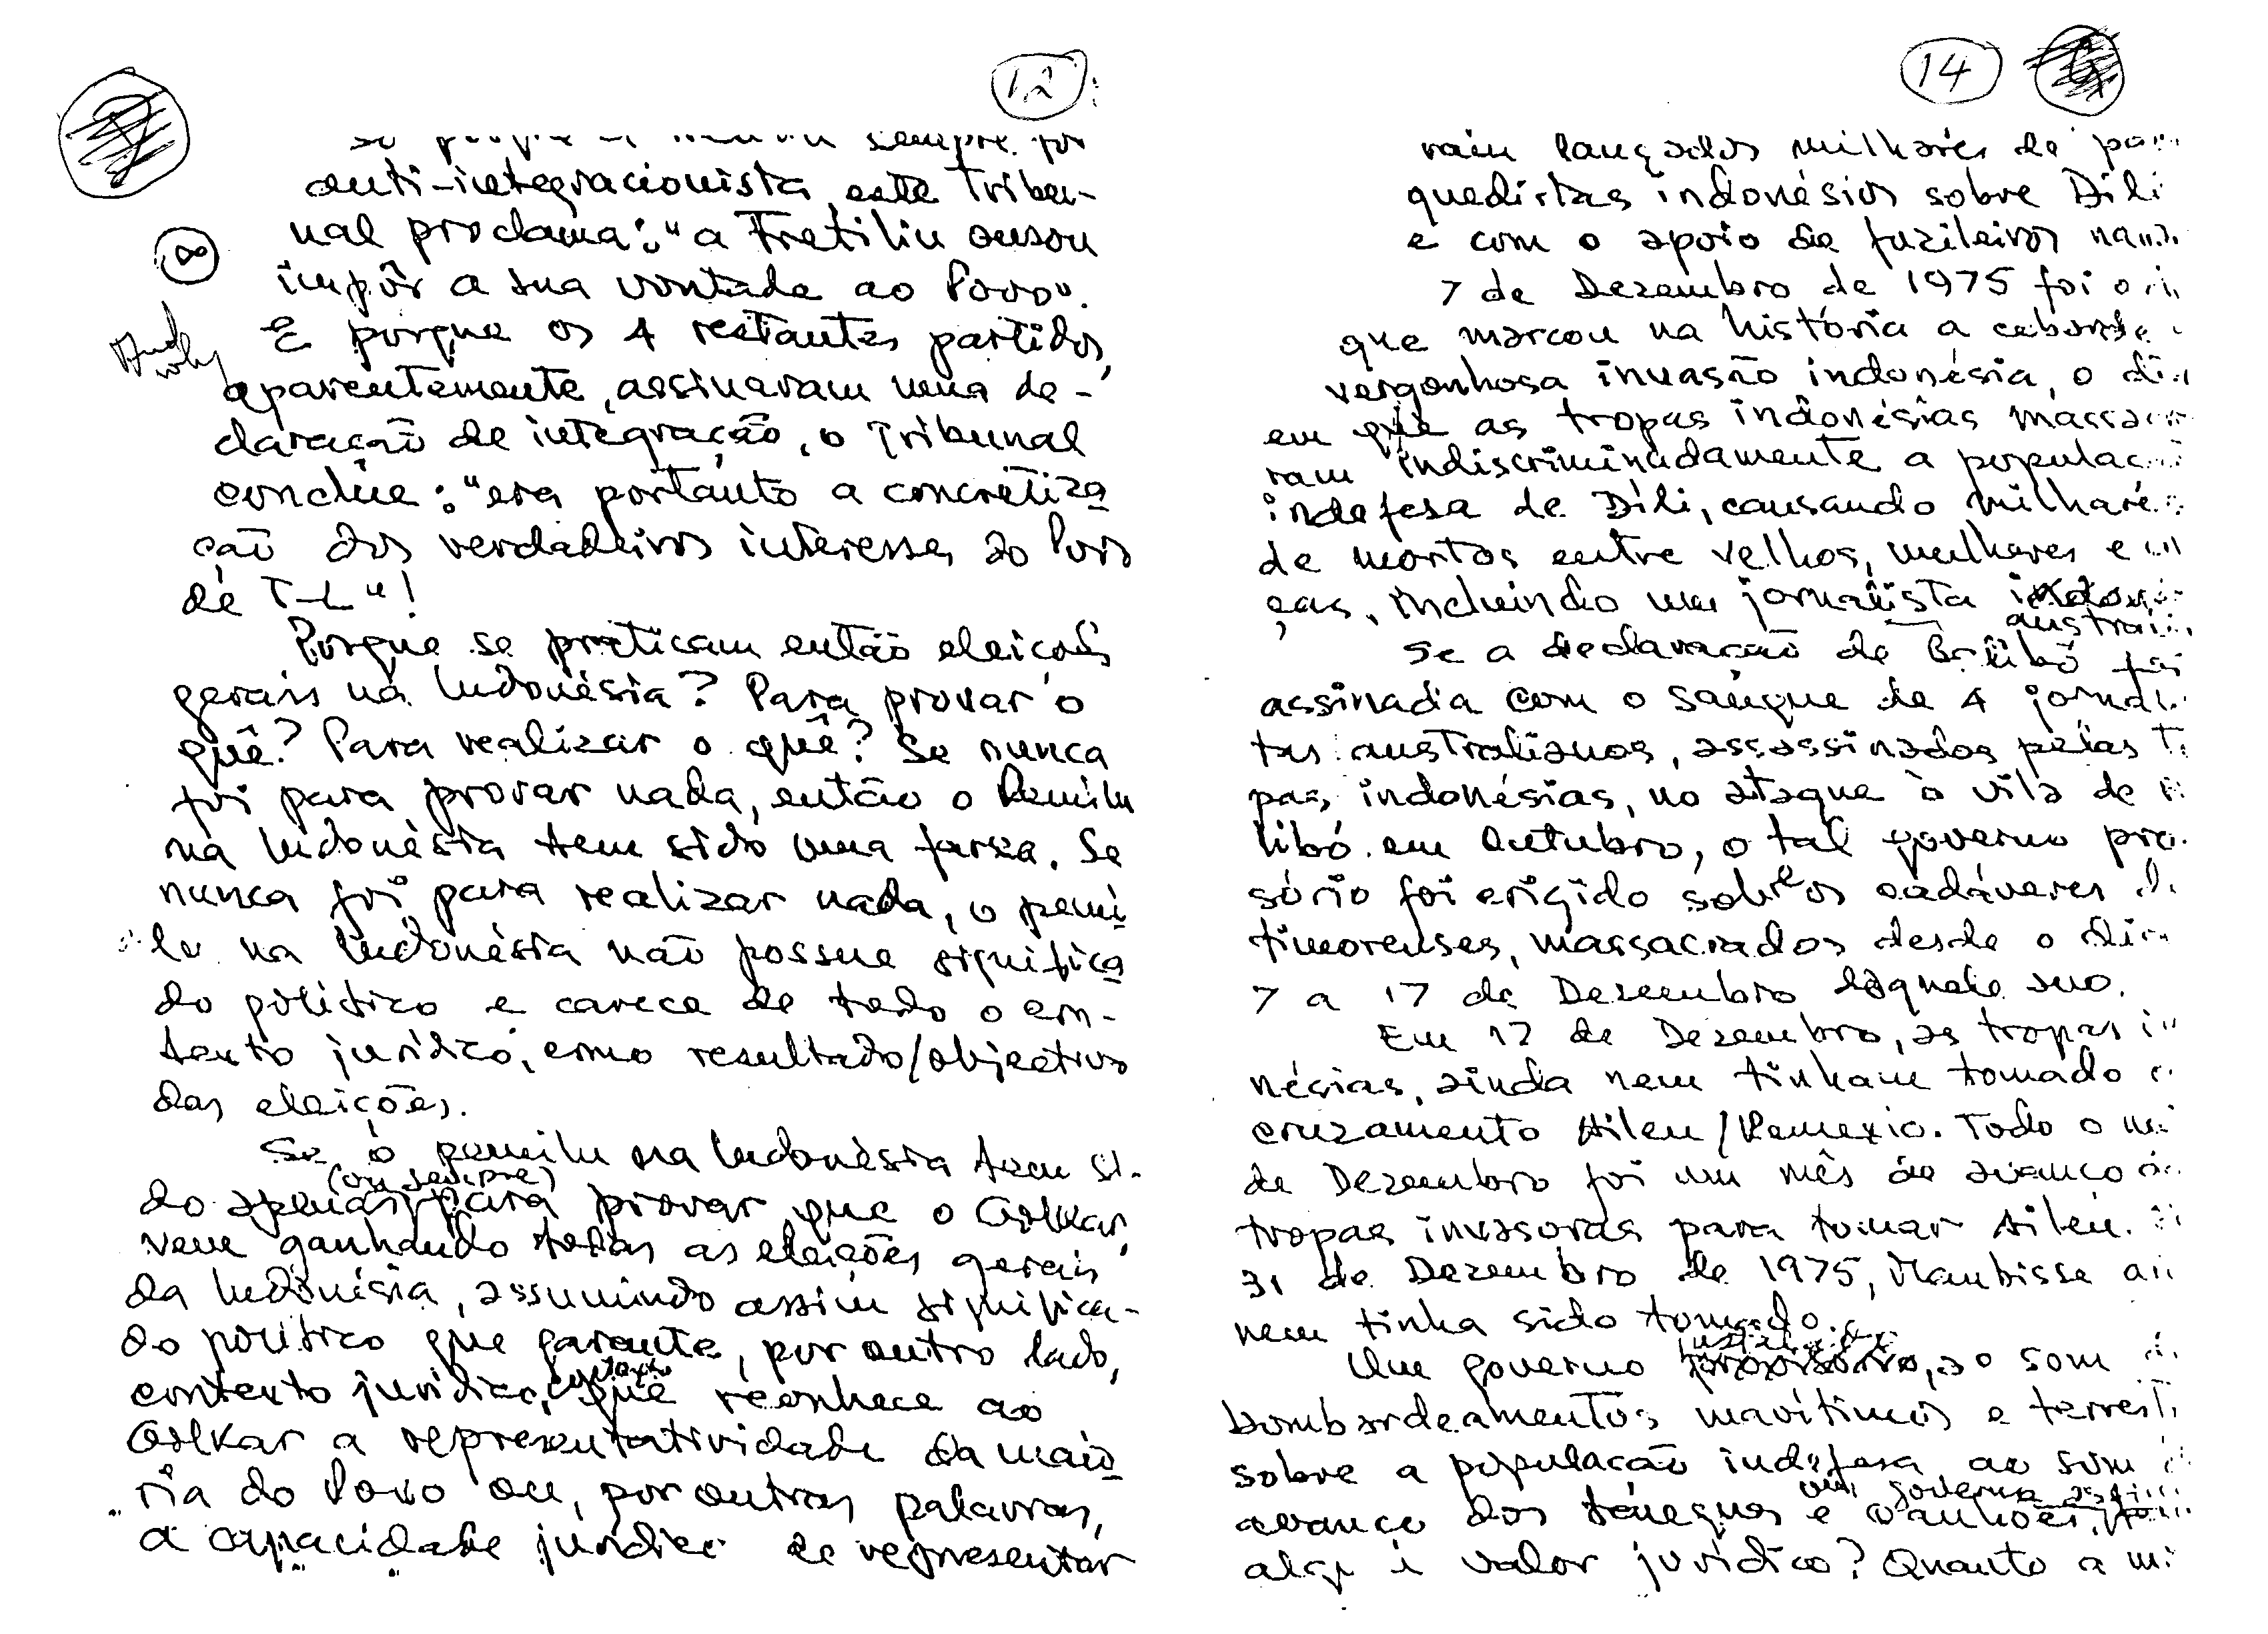 12
sempre foi
anti-integracionista, este Tribu-
nal proclama: "a Fretilin ousou
impôr a sua vontade ao Povo".
E porque os 4 restantes partidos,
aparentemente, assinaram uma de-
claração de integração, o Tribunal
conclúe: "era portanto a concretiza
ção dos verdadeiros interesses do Povo
de T-L"!
Porque se praticam então eleições
gerais na Indonésia? Para provar o
quê? Para realizar o quê? Se nunca
foi para provar nada, então o Pemilu
na Indonésia tem sido uma farsa. Se
nunca foi para realizar nada, o pemi
lu na Indonésia não possue significa
do político e carece de todo o con-
texto jurídico, como resultado/objectivo
das eleições.
Se o pemilu na Indonésia tem si-
(ou sempre)
do apenas para provar que o Golkar
vem ganhando todas as eleições gerais
da Indonésia, assumindo assim significa-
do político que garante, por outro lado,
contexto jurídico, contexto que reconhece ao
Golkar a representatividade da maio
ria do Povo ou, por outras palavras,
a capacidade jurídica de representar
14
ram lançados milhares de
quedistas indonésios sobre Dili
e com o apoio de fuzileiros
7 de Dezembro de 1975 foi o
que marcou na história a cobarde
vergonhosa invasão indonésia, o
em que as tropas indonésias
ram indiscriminadamente a
indefesa de Díli, causando
de mortos entre velhos, mulheres e
ças, incluindo um jornalista
Se a declaração de Balibó foi
assinada com o sangue de 4
tas australianos, assassinados pelas
pas indonésias, no ataque à vila de
libó em Outubro, o tal governo
sório foi erigido sobre os cadáveres
timorenses, massacrados desde o
7 a 17 de Dezembro daquele ano.
Em 17 de Dezembro, as tropas
nésias, ainda nem tinham tomado
cruzamento Aileu/Remexio. Todo o
de Dezembro foi um mês de avanço
tropas invasoras para tomar Aileu.
31 de Dezembro de 1975, Maubisse
nem tinha sido tomado.
Um governo, ao som
bombardeamentos marítimos e
sobre a população indefesa ao som
um governo
avanço dos tanques e canhões,
valor jurídico? Quanto a